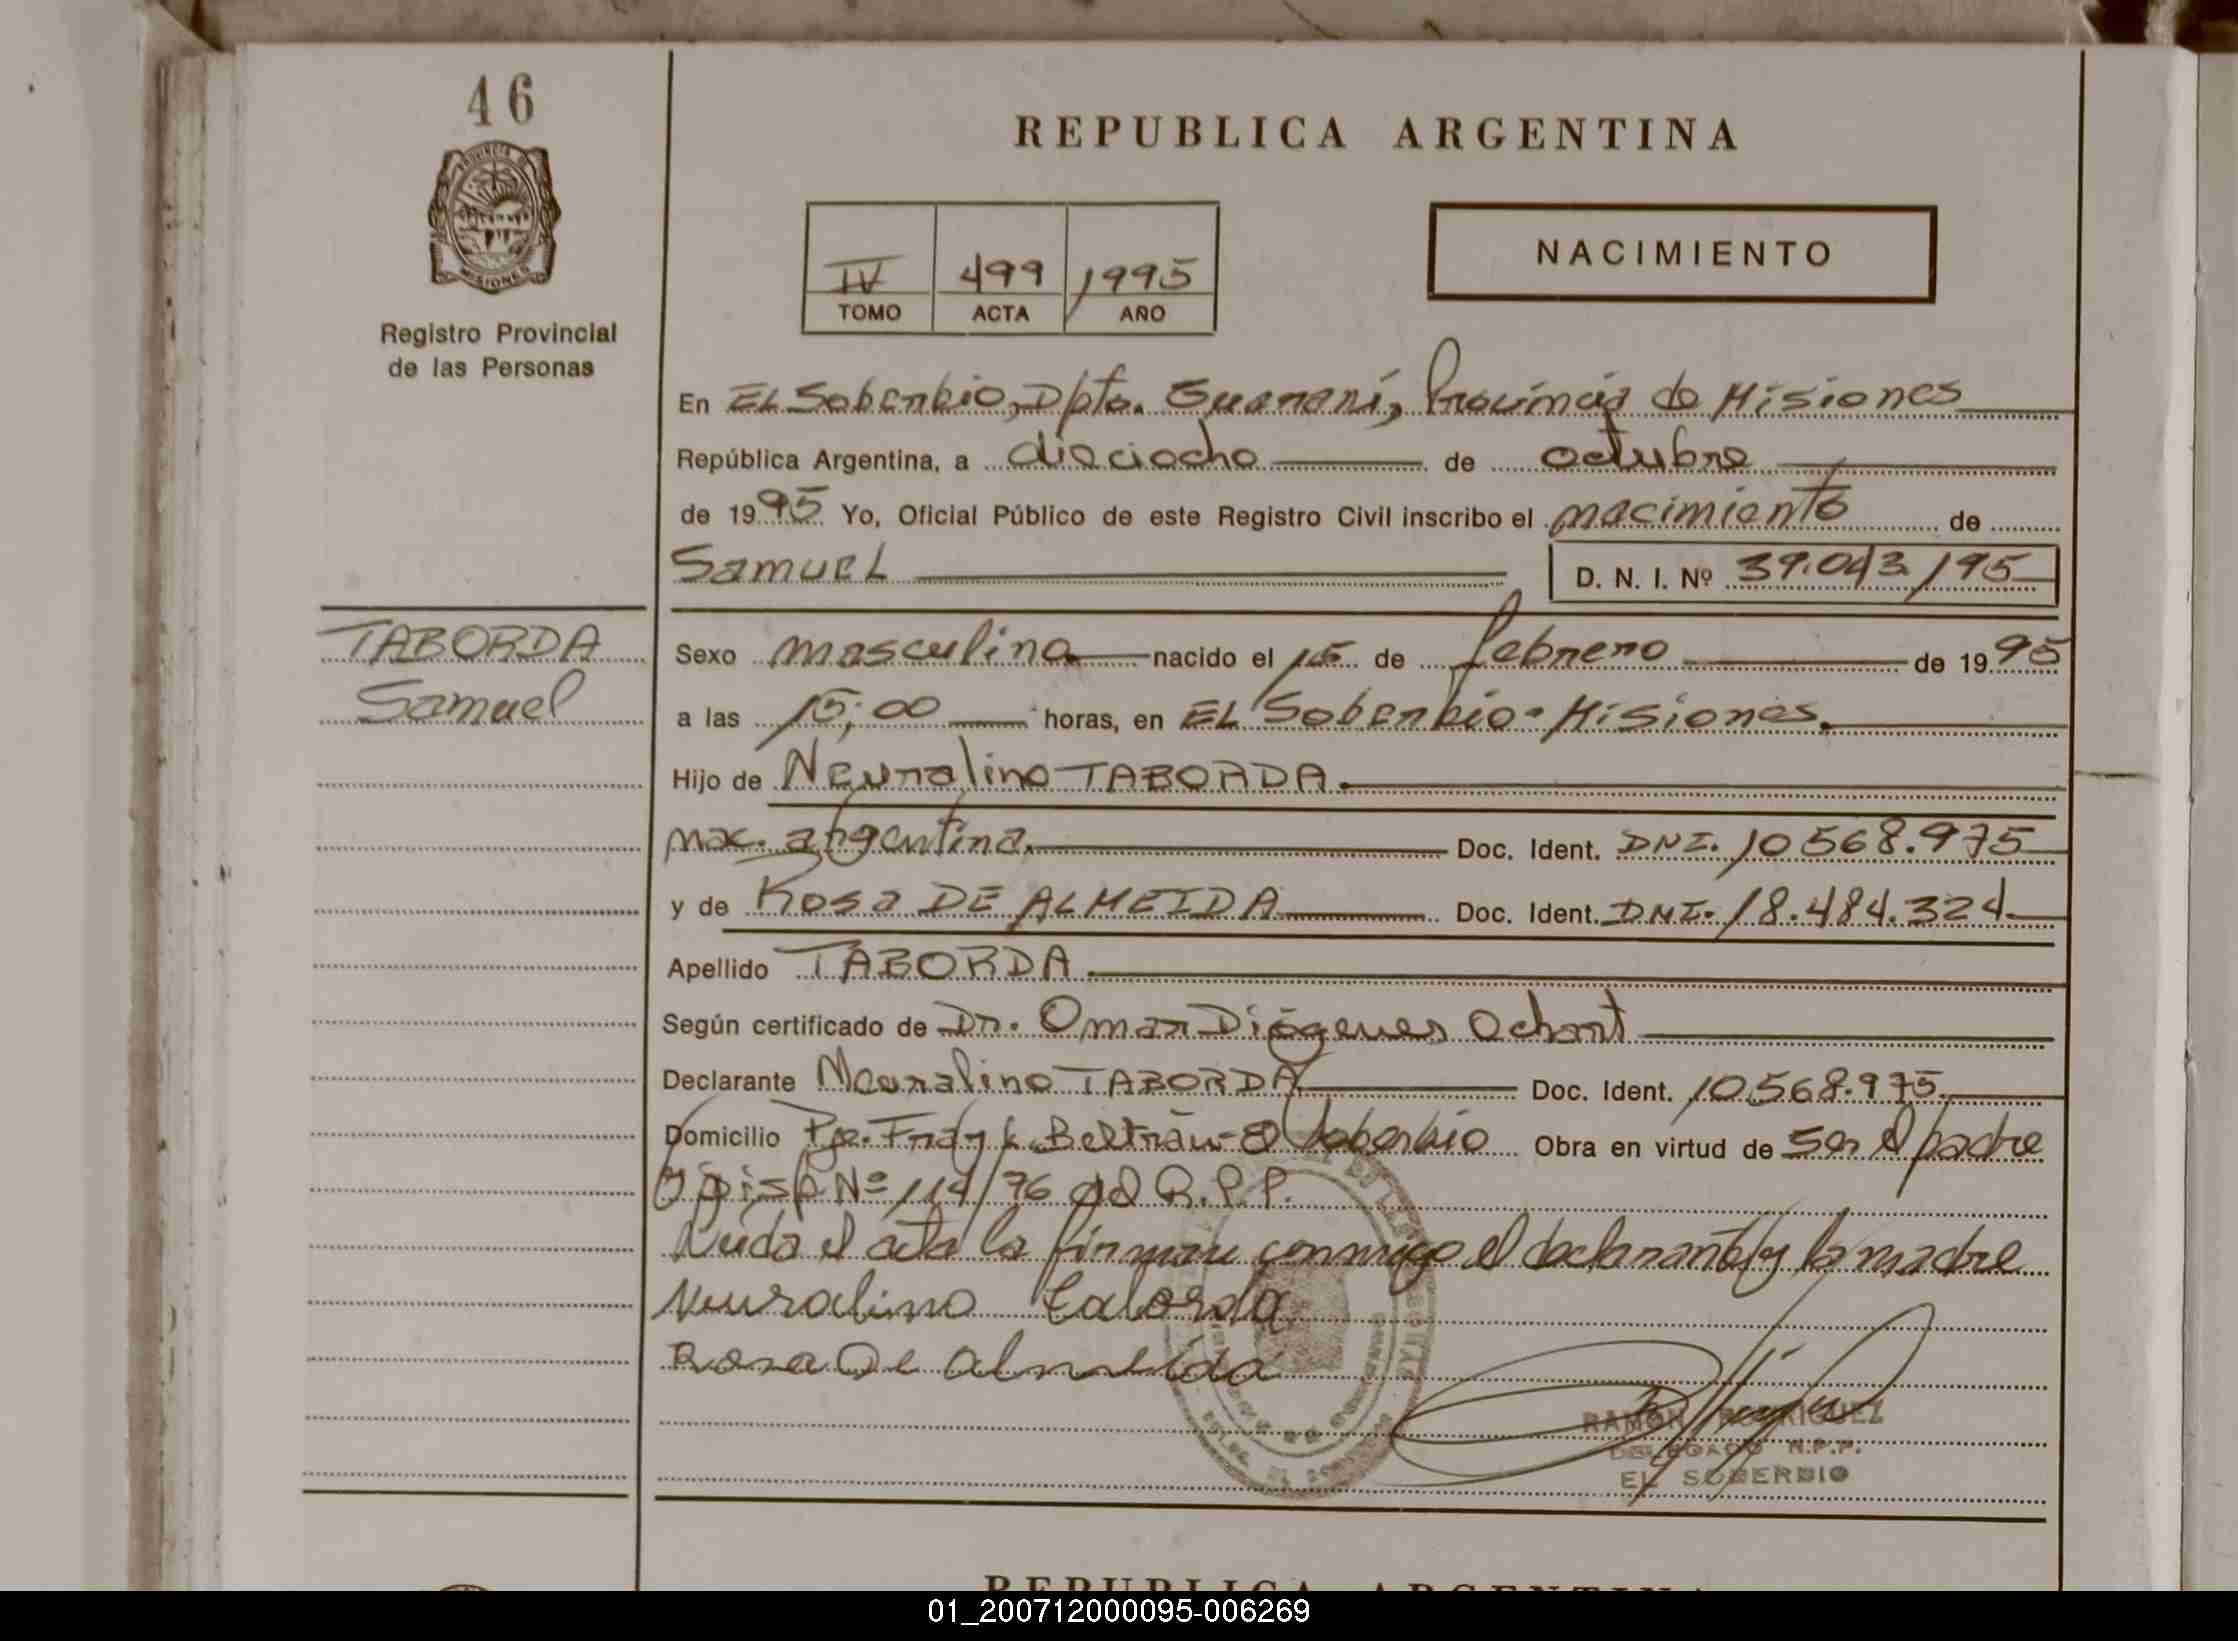 46
PROVINCIA DE
MISIONES
Registro Provincial
de las Personas
REPUBLICA ARGENTINA
IV 499 1995
TOMO ACTA AÑO
NACIMIENTO
En EL Soberbio, Dpto. Guaraní, Provincia de Misiones
República Argentina, a dieciocho de octubre
de 1995 Yo, Oficial Público de este Registro Civil inscribo el nacimiento de
Samuel D. N. I. Nº 39.043.195
TABORDA
Samuel
Sexo masculino nacido el 15 de febrero de 1995
a las 15;00 horas, en EL Soberbio - Misiones.
Hijo de Neuralino TABORDA.
nac. argentina. Doc. Ident. DNI. 10568.975
y de Rosa DE ALMEIDA Doc. Ident. DNI. 18.484.324
Apellido TABORDA.
Según certificado de Dr. Omar Diógenes
Declarante Neuralino TABORDA Doc. Ident. 10.568.975.
Domicilio Pje. Fray L. Beltrán - El Soberbio Obra en virtud de ser el padre
y Disp. Nº 114/76 del R.P.P.
Leída el acta la firman conmigo el declarante y la madre
Neuralino Taborda
Rosa De Almeida
RAMON RODRIGUEZ
DELEGADO R.P.P.
EL SOBERBIO
REPUBLICA ARGENTINA
01_200712000095-006269